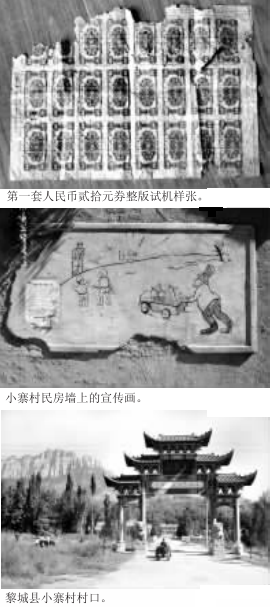 第一套人民币贰拾元券整版试机样张。
小寨村民房墙上的宣传画。
黎城县小寨村村口。